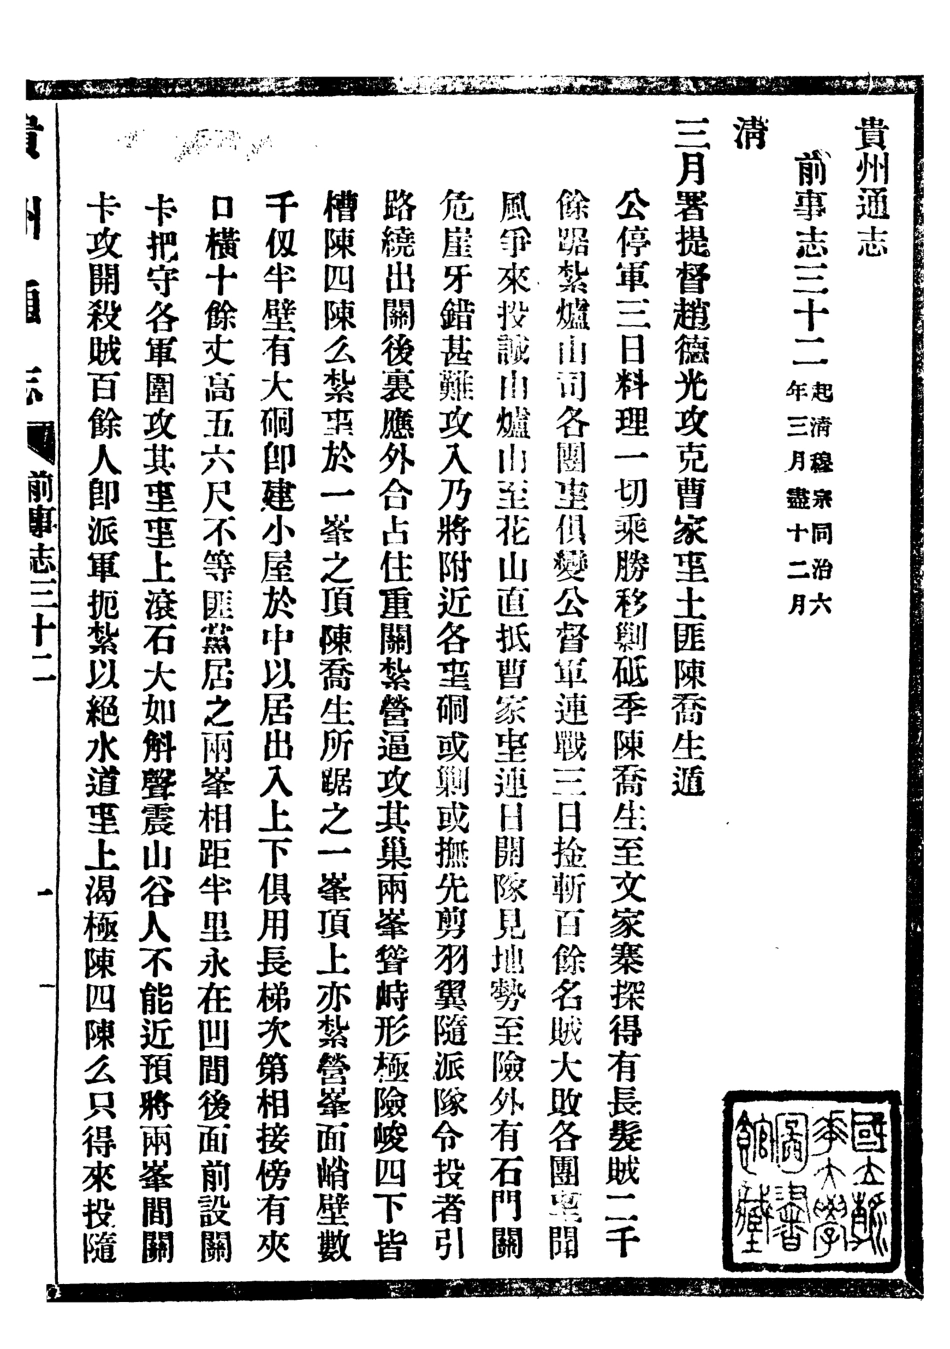 貴州通志
前事志三十二
起清穆宗同治六
年三月盡十二月
清
三月署提督趙德光攻克曹家㘭土匪陳喬生遁
公停軍三日料理一切乘勝移剿砥季陳喬生至文家寨探得有長髮賊二千
餘踞紮爐山司各團㘭俱變公督軍連戰三日捦斬百餘名賊大敗各團㘭聞
風爭來投誠山爐山至花山直抵曹家㘭連日開隊見地勢至險外有石門關
危崖牙錯甚難攻入乃將附近各㘭硐或剿或撫先剪羽翼隨派隊令投者引
路繞出關後裏應外合占住重關紮營逼攻其巢兩峯聳峙形極險峻四下皆
槽陳四陳么紮㘭於一峯之頂陳喬生所踞之一峯頂上亦紮營峯面峭壁數
千仭半壁有大硐卽建小屋於中以居出入上下俱用長梯次第相接傍有夾
口橫十餘丈高五六尺不等匪黨居之兩峯相距半里永在凹間後面前設關
卡把守各軍圍攻其㘭㘭上滾石大如斛聲震山谷人不能近預將兩峯間關
卡攻開殺賊百餘人卽派軍扼紮以絕水道㘭上渴極陳四陳么只得來投隨
貴州通志
前事志三十二
一
國立
圖書館藏